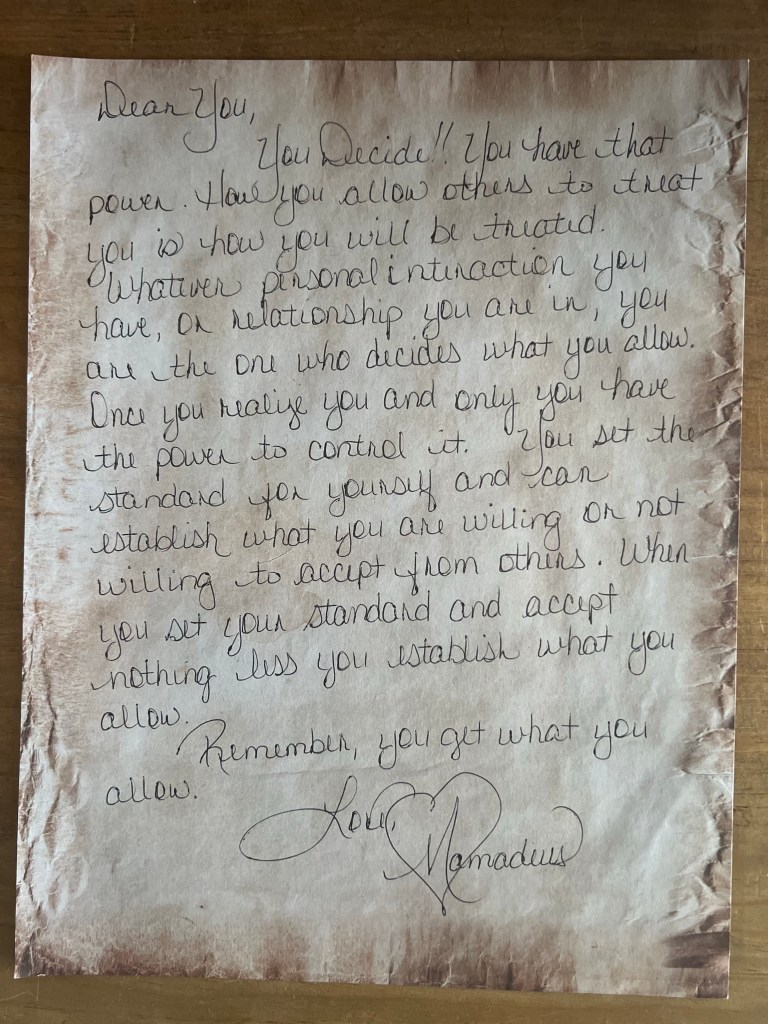 Dear You,
You Decide!! You have that
power. How you allow others to treat
you is how you will be treated.
Whatever personal interaction you
have, or relationship you are in, you
are the one who decides what you allow.
Once you realize you and only you have
the power to control it. You set the
standard for yourself and can
establish what you are willing or not
willing to accept from others. When
you set your standard and accept
nothing less you establish what you
allow.
Remember, you get what you
allow.
Love,
Mamadeus